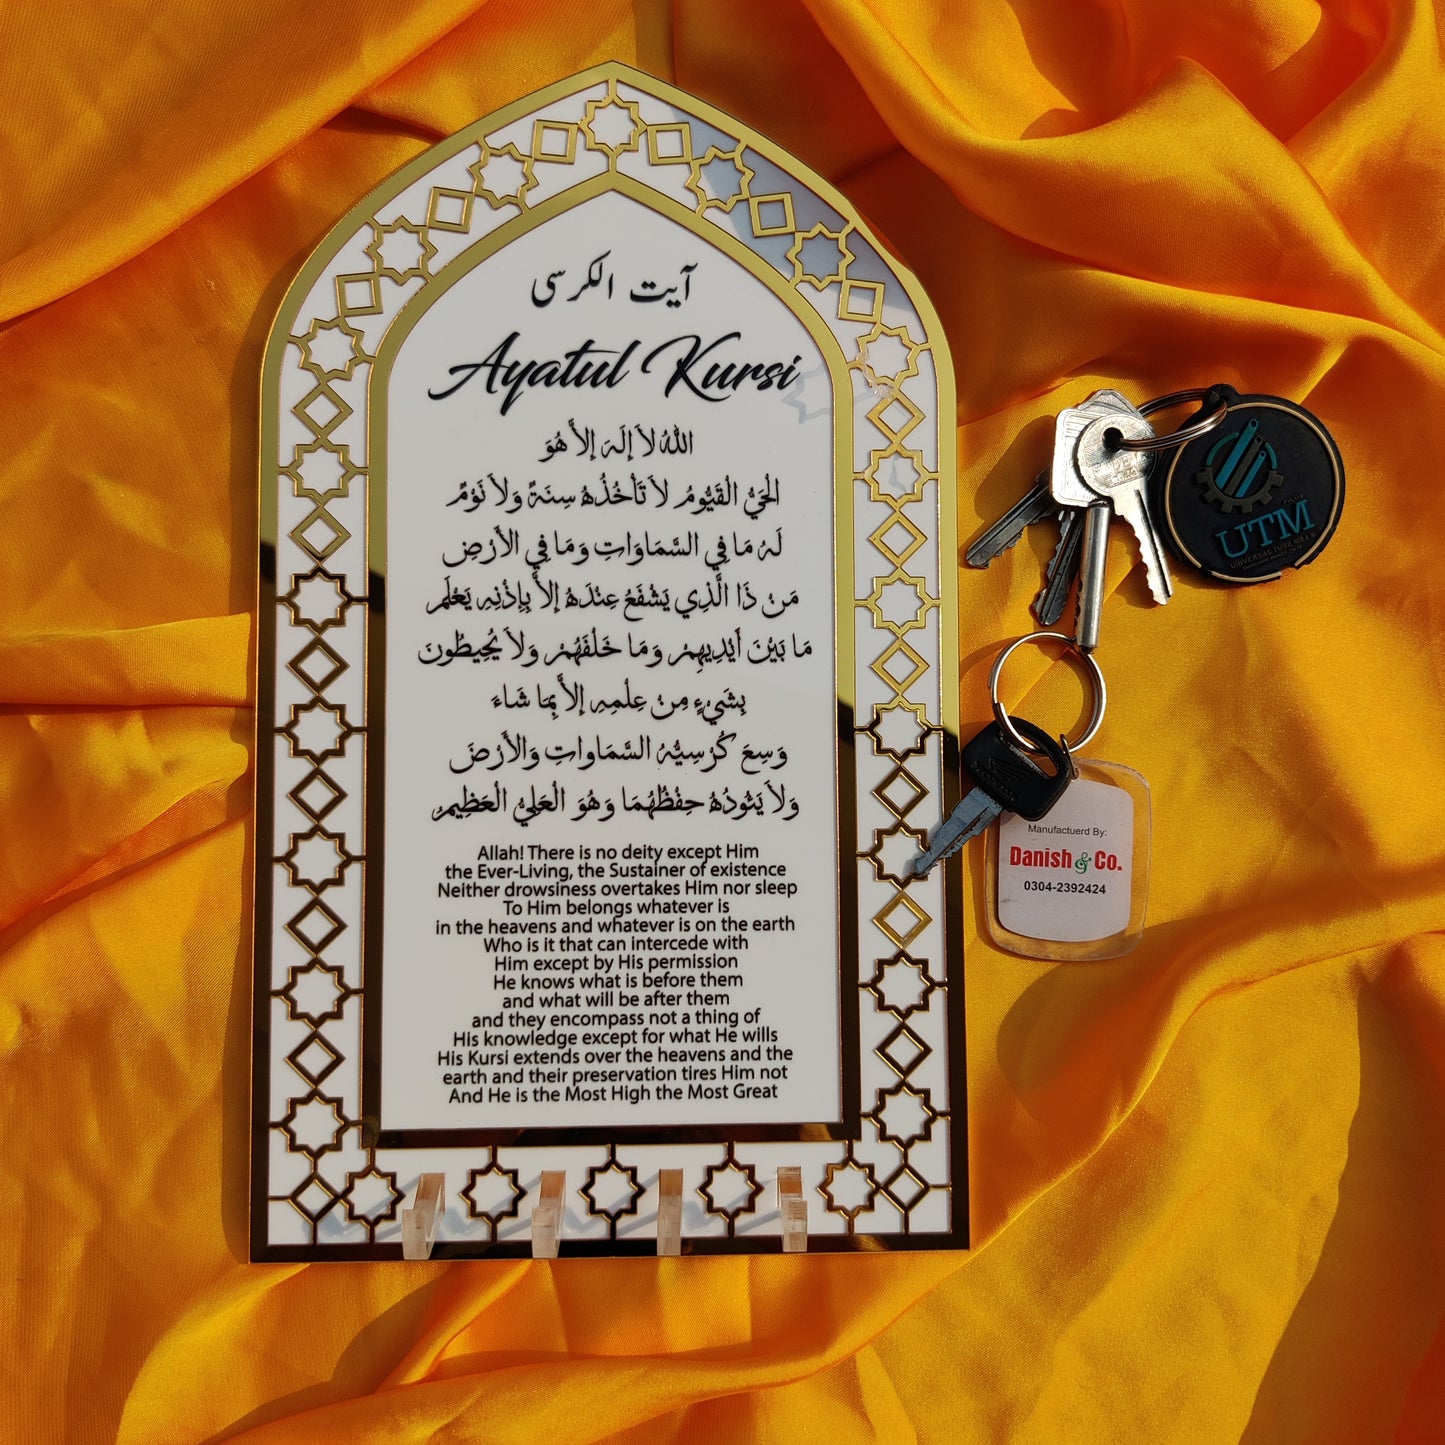 آیت الکرسی
Ayatul Kursi
اللهُ لاَ إِلَهَ إِلاَّ هُوَ
الْحَيُّ الْقَيُّومُ لاَ تَأْخُذُهُ سِنَةٌ وَلاَ نَوْمٌ
لَهُ مَا فِي السَّمَاوَاتِ وَمَا فِي الأَرْضِ
مَنْ ذَا الَّذِي يَشْفَعُ عِنْدَهُ إِلاَّ بِإِذْنِهِ يَعْلَمُ
مَا بَيْنَ أَيْدِيهِمْ وَمَا خَلْفَهُمْ وَلاَ يُحِيطُونَ
بِشَيْءٍ مِنْ عِلْمِهِ إِلاَّ بِمَا شَاءَ
وَسِعَ كُرْسِيُّهُ السَّمَاواتِ وَالأَرْضَ
وَلاَ يَئُودُهُ حِفْظُهُمَا وَهُوَ الْعَلِيُّ الْعَظِيمُ
Allah! There is no deity except Him
the Ever-Living, the Sustainer of existence
Neither drowsiness overtakes Him nor sleep
To Him belongs whatever is
in the heavens and whatever is on the earth
Who is it that can intercede with
Him except by His permission
He knows what is before them
and what will be after them
and they encompass not a thing of
His knowledge except for what He wills
His Kursi extends over the heavens and the
earth and their preservation tires Him not
And He is the Most High the Most Great
UTM
UNIVERSAL TUBE MILLS
Manufactuerd By:
Danish & Co.
0304-2392424